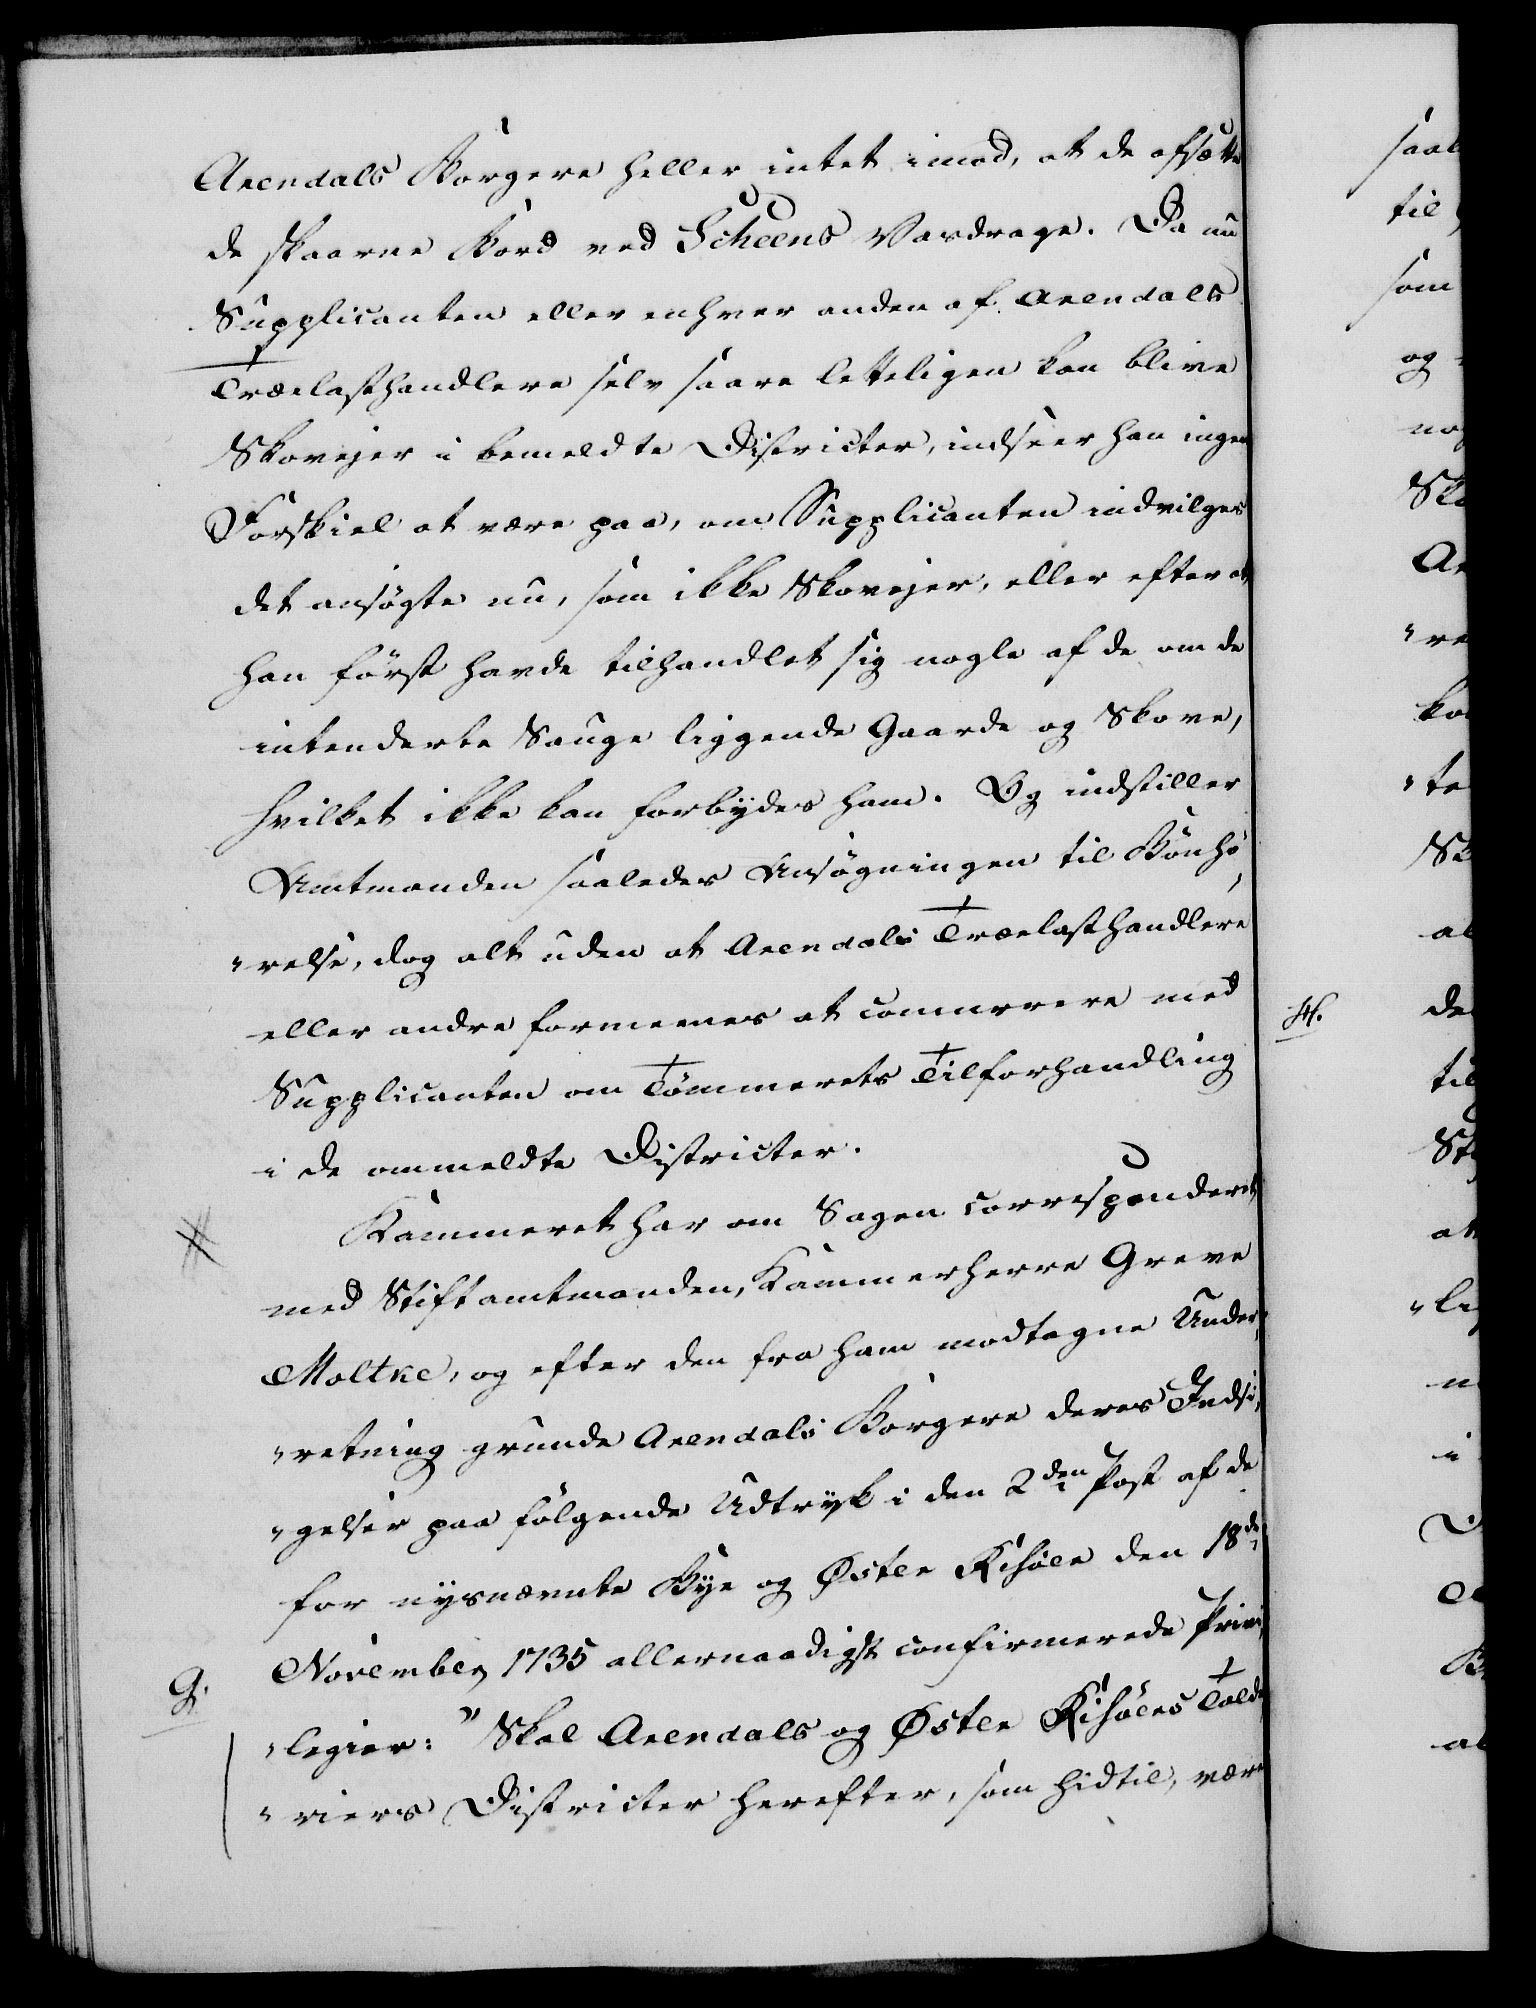 Arendals Borgere heller intet imod, at de afsætte
de skaarne Bord ved Scheens Vasdrage. Da nu
Supplicanten eller enhver anden af Arendals
Trælasthandlere selv saare letteligen kan blive
Skovejer i bemeldte Districter, indseer han ingen
Forskiel at være paa, om Supplicanten indvilges
det ansøgte nu, som ikke Skovejer, eller efter at
han först havde tilhandlet sig nogle af de om de
intenderte Sauge liggende Gaarde og Skove,
hvilket ikke kan forbydes ham. Og indstiller
Amtmanden saaledes Ansøgningen til Bönhö,
"relse, dog alt uden at Arendals Trælasthandlere
eller andre formeenes at concurrere med
Supplicanten om Tömmerets Tilforhandling
i de ommeldte Districter.
Kammeret har om Sagen corresponderet
med Stiftamtmanden, Kammerherre Greve
Moltke, og efter den fra ham modtagne Under,
"retning grunde Arendals Borgere deres Indsi,
"gelser paa følgende Udtryk i den 2den Post af de
for nysnævnte Bye og Øster Risöer den 18de
November 1735 allernaadigst confirmerede Privi,
9.
"legier: "Skal Arendals og Øster Risöers Tolde,
"riers Districter herefter, som hidtil, være
saal
til
som
og
nog
Sko
Ar
"re
ko
"te
Sk
al
H.
de
til
St
at
"li
n
i
al